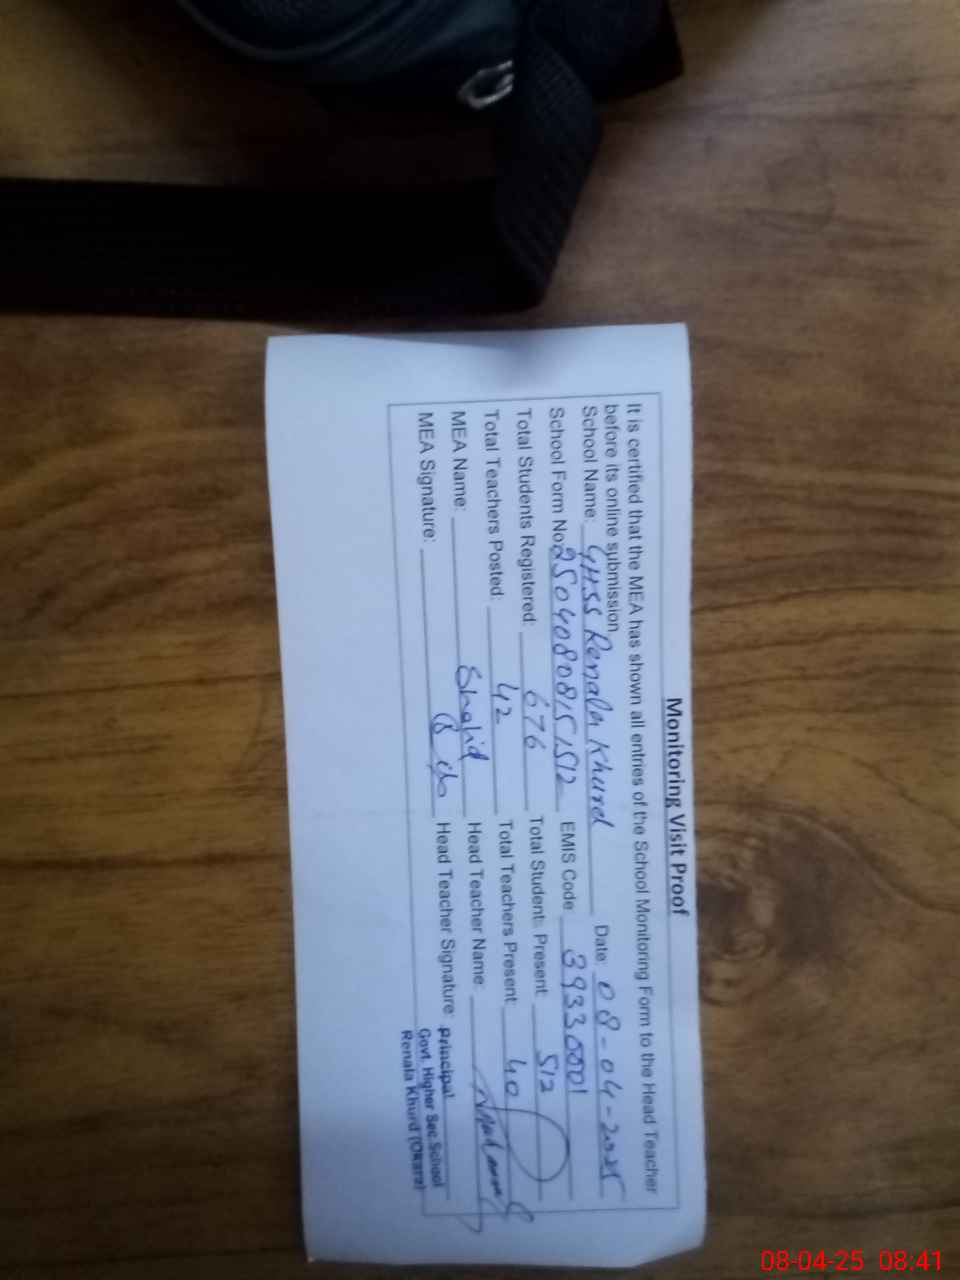 Monitoring Visit Proof
It is certified that the MEA has shown all entries of the School Monitoring Form to the Head Teacher
before its online submission.
School Name: GHSS Renala Khurd Date: 08-04-2025
School Form No: 25040808151512 EMIS Code 39330001
Total Students Registered: 676 Total Students Present: 512
Total Teachers Posted: 42 Total Teachers Present: 40
MEA Name: Shahid Head Teacher Name:
MEA Signature: Head Teacher Signature: Principal
Govt. Higher Sec. School
Renala Khurd (Okara)
08-04-25 08:41